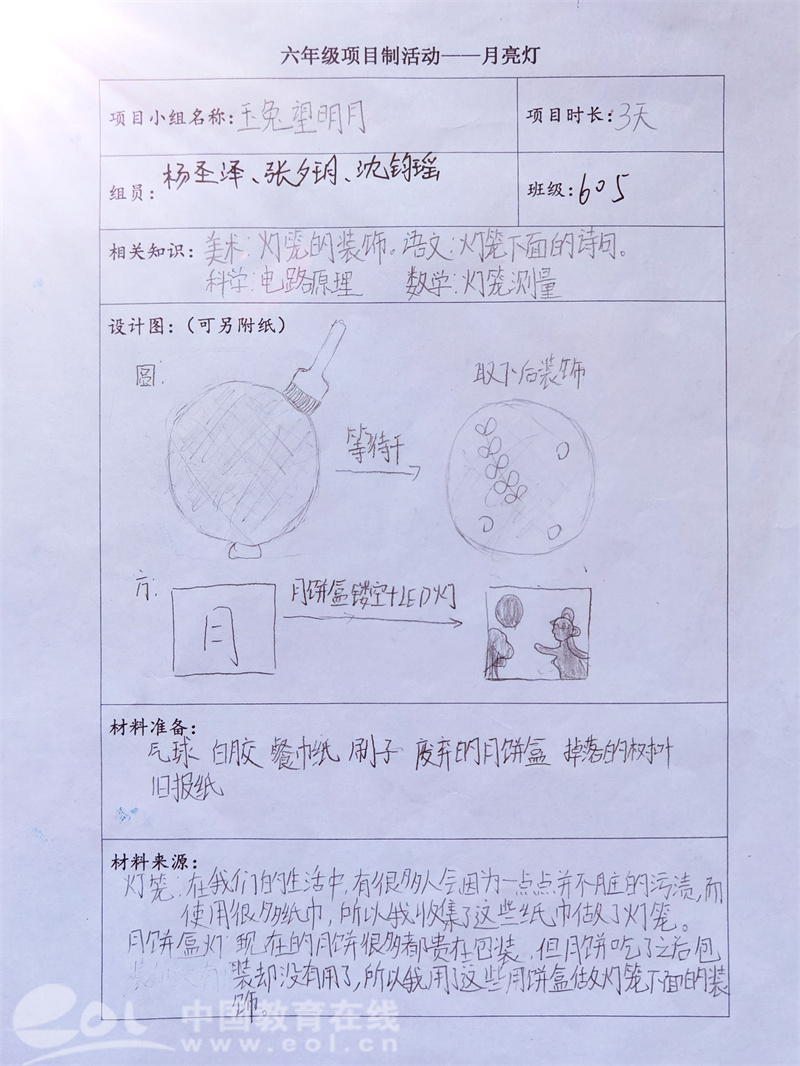 六年级项目制活动——月亮灯
项目小组名称：玉兔望明月
项目时长：3天
组员：杨圣泽、张夕玥、沈钧瑶
班级：605
相关知识：美术：灯笼的装饰。语文：灯笼下面的诗句。
科学：电路原理 数学：灯笼测量
设计图：（可另附纸）
圆：
取下后装饰
等待干
方：
月饼盒镂空+LED灯
月
材料准备：
气球 白胶 餐巾纸 刷子 废弃的月饼盒 掉落的树叶
旧报纸
材料来源：
灯笼：在我们的生活中，有很多人会因为一点点并不脏的污渍，而
使用很多纸巾，所以我收集了这些纸巾做了灯笼。
月饼盒灯：现在的月饼很多都贵在包装，但月饼吃了之后包
装却没有用了，所以我用了这些月饼盒做灯笼下面的装
饰。
eol 中国教育在线
www.eol.cn